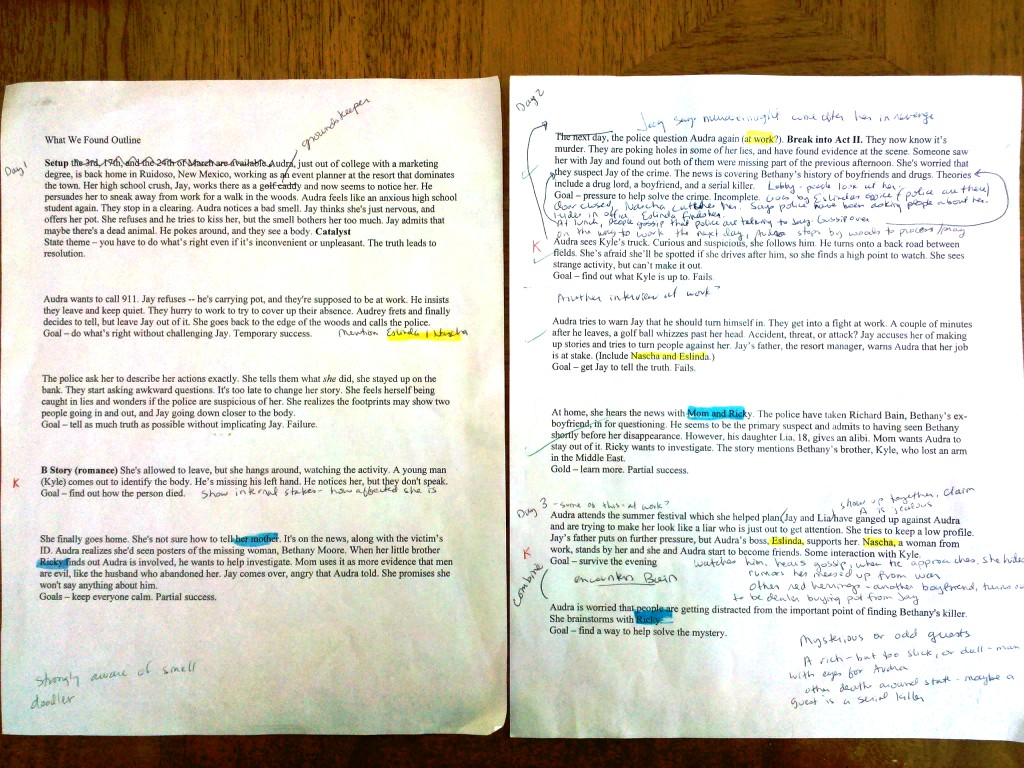 groundskeeper
What We Found Outline
Day 1
Setup the 3rd, 17th, and the 24th of March are available Audra, just out of college with a marketing
degree, is back home in Ruidoso, New Mexico, working as an event planner at the resort that dominates
the town. Her high school crush, Jay, works there as a golf caddy and now seems to notice her. He
persuades her to sneak away from work for a walk in the woods. Audra feels like an anxious high school
student again. They stop in a clearing. Audra notices a bad smell. Jay thinks she's just nervous, and
offers her pot. She refuses and he tries to kiss her, but the smell bothers her too much. Jay admits that
maybe there's a dead animal. He pokes around, and they see a body. Catalyst
State theme – you have to do what's right even if it's inconvenient or unpleasant. The truth leads to
resolution.
Audra wants to call 911. Jay refuses -- he's carrying pot, and they're supposed to be at work. He insists
they leave and keep quiet. They hurry to work to try to cover up their absence. Audrey frets and finally
decides to tell, but leave Jay out of it. She goes back to the edge of the woods and calls the police.
Goal – do what's right without challenging Jay. Temporary success. Mention Eslinda, Nascha
The police ask her to describe her actions exactly. She tells them what she did, she stayed up on the
bank. They start asking awkward questions. It's too late to change her story. She feels herself being
caught in lies and wonders if the police are suspicious of her. She realizes the footprints may show two
people going in and out, and Jay going down closer to the body.
Goal – tell as much truth as possible without implicating Jay. Failure.
B Story (romance) She's allowed to leave, but she hangs around, watching the activity. A young man
K (Kyle) comes out to identify the body. He's missing his left hand. He notices her, but they don't speak.
Goal – find out how the person died. Show internal stakes - how affected she is
She finally goes home. She's not sure how to tell her mother. It's on the news, along with the victim's
ID. Audra realizes she'd seen posters of the missing woman, Bethany Moore. When her little brother
Ricky finds out Audra is involved, he wants to help investigate. Mom uses it as more evidence that men
are evil, like the husband who abandoned her. Jay comes over, angry that Audra told. She promises she
won't say anything about him.
Goals – keep everyone calm. Partial success.
strongly aware of smell
doodler
Day 2
Jay says
come after her in revenge
The next day, the police question Audra again (at work?). Break into Act II. They now know it's
murder. They are poking holes in some of her lies, and have found evidence at the scene. Someone saw
her with Jay and found out both of them were missing part of the previous afternoon. She's worried that
they suspect Jay of the crime. The news is covering Bethany's history of boyfriends and drugs. Theories
include a drug lord, a boyfriend, and a serial killer. Lobby - people look at her.
Goal – pressure to help solve the crime. Incomplete. Goes by Eslinda's office (police are there)
door closed, Nascha catches her. Says police have been asking people about her.
hides in office, Eslinda finds her.
At lunch, people gossip that police are talking to Jay. Gossip over
on the way to work the next day, Audra stops by woods to process/pray
K Audra sees Kyle's truck. Curious and suspicious, she follows him. He turns onto a back road between
fields. She's afraid she'll be spotted if she drives after him, so she finds a high point to watch. She sees
strange activity, but can't make it out.
Goal – find out what Kyle is up to. Fails.
Another interview at work?
Audra tries to warn Jay that he should turn himself in. They get into a fight at work. A couple of minutes
after he leaves, a golf ball whizzes past her head. Accident, threat, or attack? Jay accuses her of making
up stories and tries to turn people against her. Jay's father, the resort manager, warns Audra that her job
is at stake. (Include Nascha and Eslinda.)
Goal – get Jay to tell the truth. Fails.
At home, she hears the news with Mom and Ricky. The police have taken Richard Bain, Bethany's ex-
boyfriend, in for questioning. He seems to be the primary suspect and admits to having seen Bethany
shortly before her disappearance. However, his daughter Lia, 18, gives an alibi. Mom wants Audra to
stay out of it. Ricky wants to investigate. The story mentions Bethany's brother, Kyle, who lost an arm
in the Middle East.
Gold – learn more. Partial success.
show up together, claim
A is jealous
Day 3 - some of this - at work?
Audra attends the summer festival which she helped plan. Jay and Lia have ganged up against Audra
and are trying to make her look like a liar who is just out to get attention. She tries to keep a low profile.
Jay's father puts on further pressure, but Audra's boss, Eslinda, supports her. Nascha, a woman from
K work, stands by her and she and Audra start to become friends. Some interaction with Kyle.
Goal – survive the evening watches him, hears gossip, when he approaches, she hides
rumors he messed up from war
combine
encounter Bain
other red herrings - another boyfriend, turns out
to be dealer buying pot from Jay
Audra is worried that people are getting distracted from the important point of finding Bethany's killer.
She brainstorms with Ricky.
Goal – find a way to help solve the mystery.
Mysterious or odd guests
A rich - but too slick, or dull - man
with eyes for Audra
other death around state - maybe a
guest is a serial killer